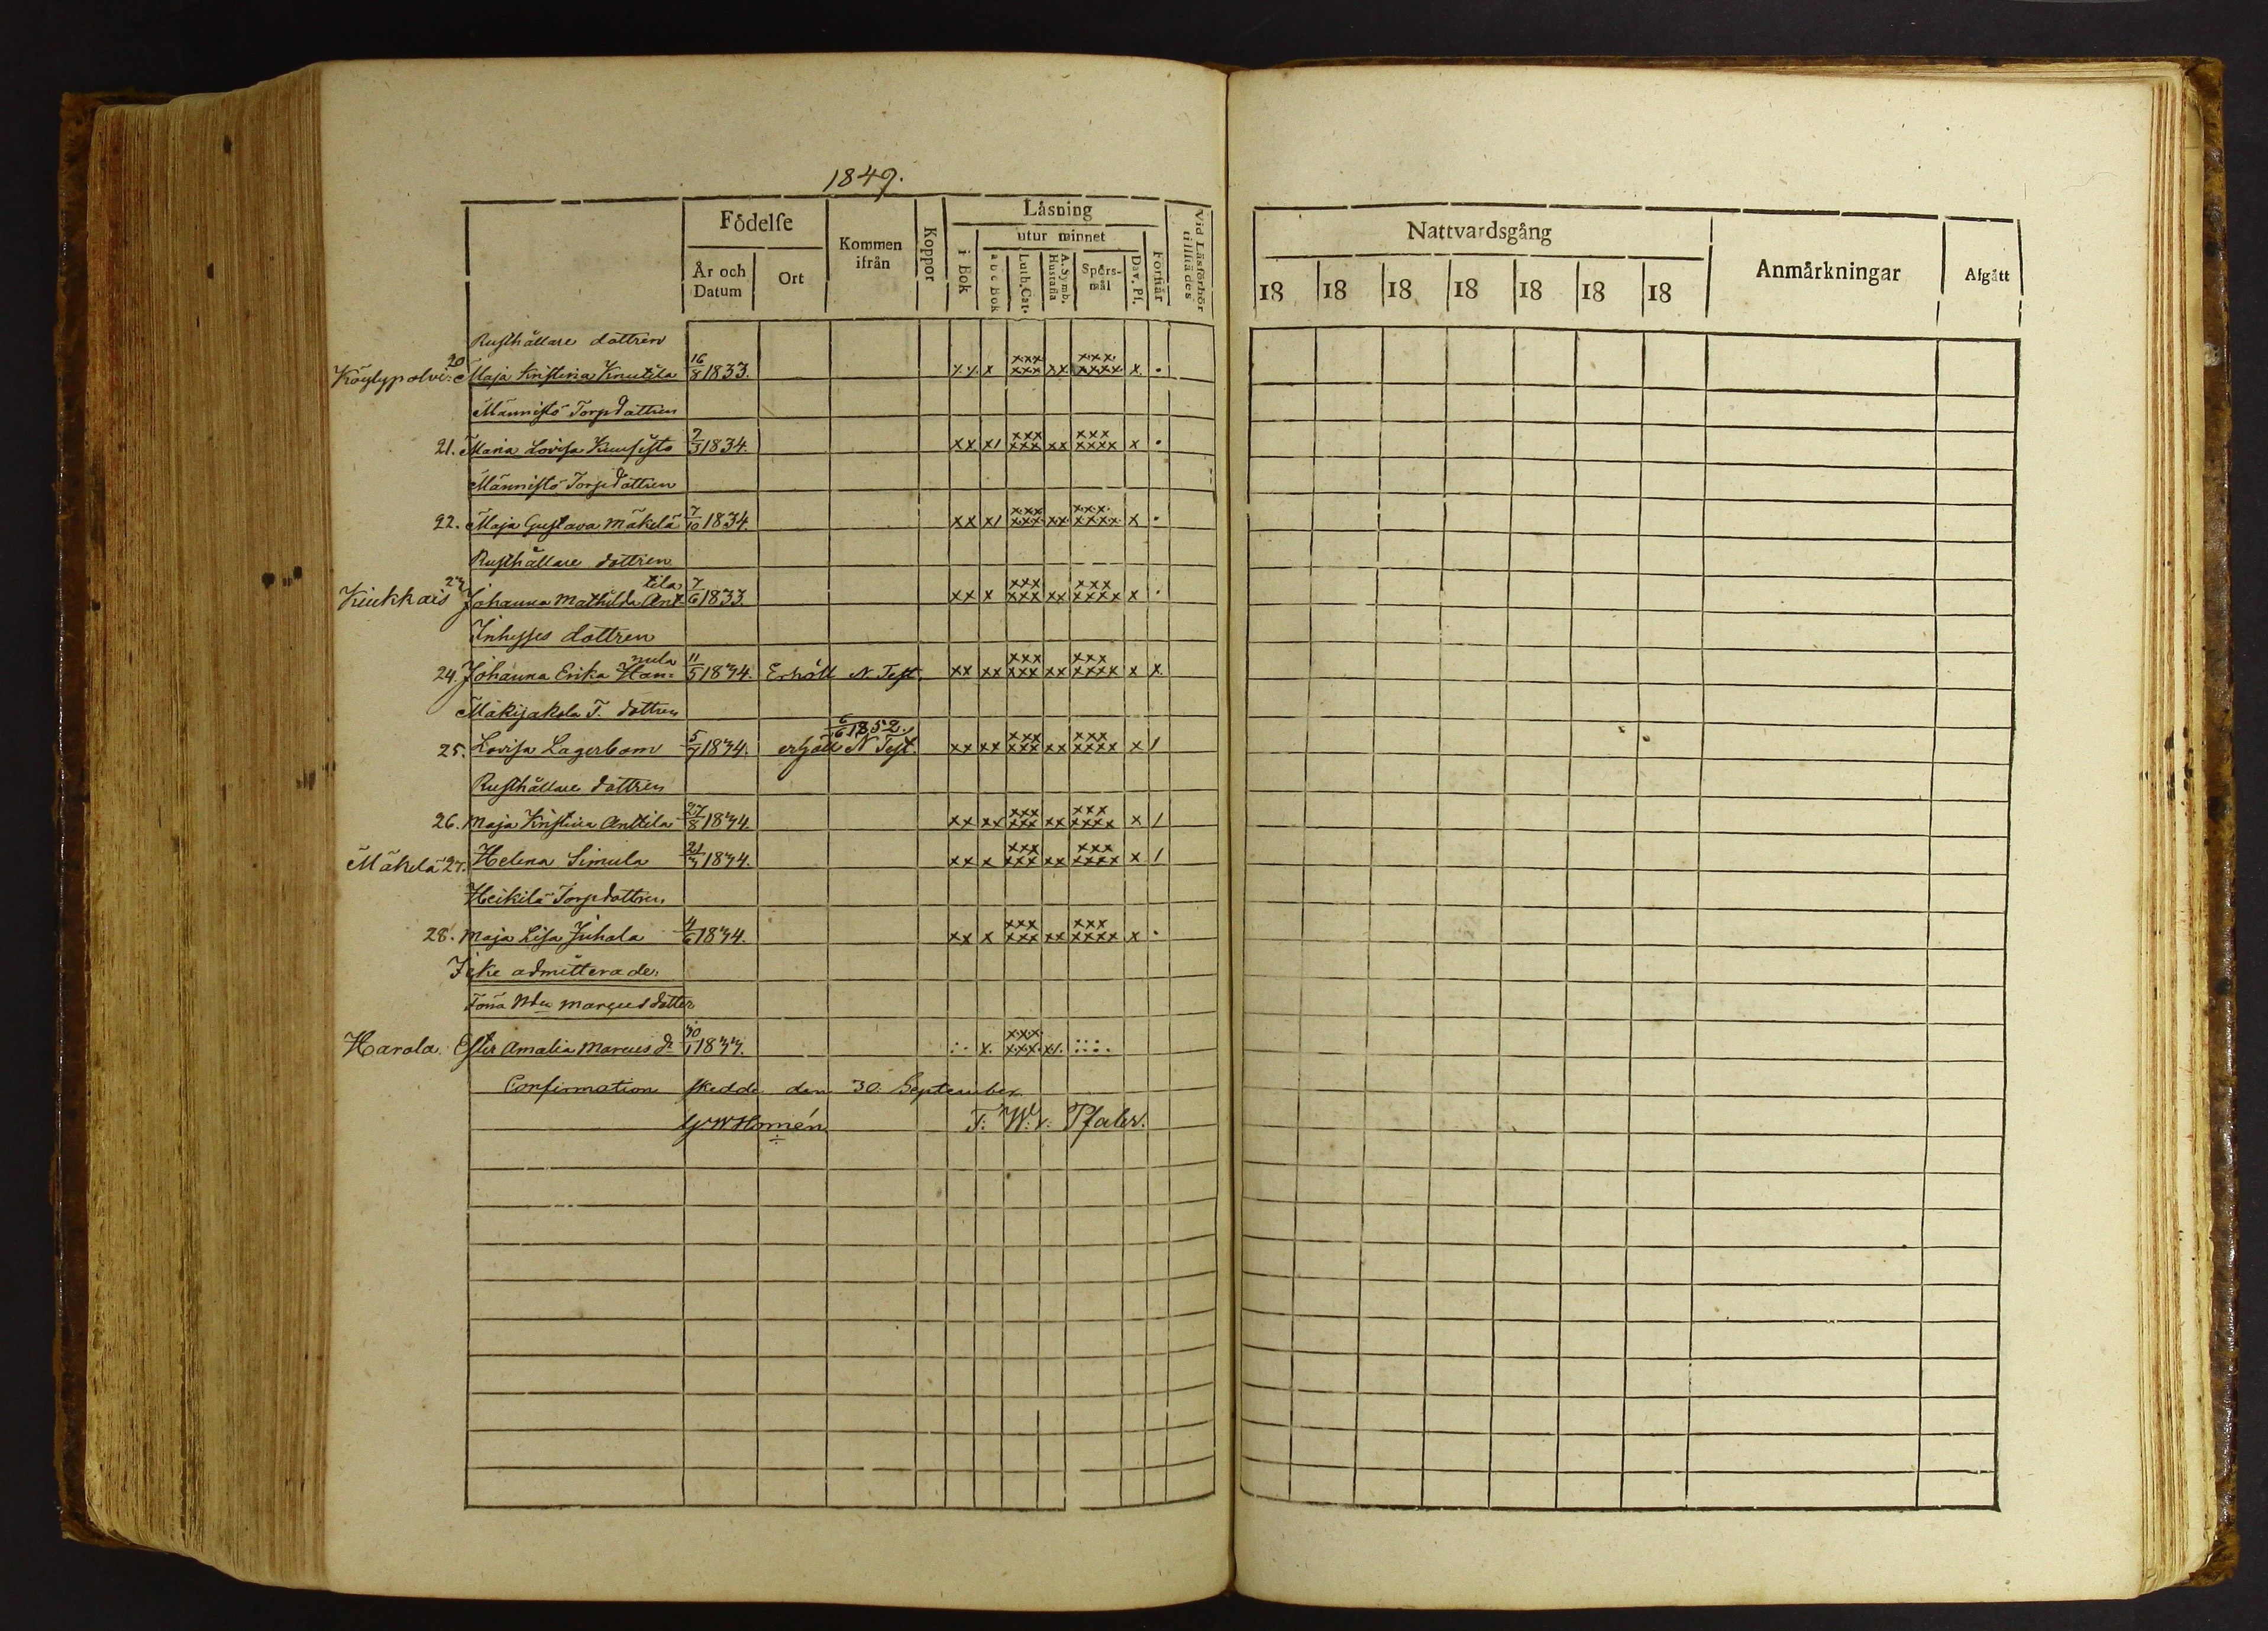 1849.
Födelse
Kommen ifrån
Koppor
Läsning
Vid Läsförhör tillstädes
År och Datum
Ort
i Bok
utur minnet
a b c Bok
Luth. Cat.
A. Symb. Hustafla
Spörs-mål
Dav. Ps.
Förstår
Nattvardsgång
Anmärkningar
Afgått
18 18 18 18 18 18 18
Rusthållare dottren
Köylypolvi 20 Maja Kristina Knutila 16/8 1833. xx x xxx xxx xx xxx xxxx x .
Männistö Torpdottren
21. Maria Lovisa Kuusisto 7/3 1834. xx x/ xxx xxx xx xxx xxxx x .
Männistö Torpdottren
22. Maja Gustava Mäkelä 7/10 1834. xx x/ xxx xxx xx xxx xxxx x .
Rusthållare dottren
Kiukkais 23 Johanna Mathilda Anttila 7/6 1833. xx x xxx xxx xx xxx xxxx x .
Inhyses dottren
24. Johanna Erika Han=nula 11/5 1834. Erhöll N. Test. xx xx xxx xxx xx xxx xxxx x x
Mäkijakola T. dottren
25. Lovisa Lagerbom 5/7 1834. erhöll N Test. 6/6 1852. xx xx xxx xxx xx xxx xxxx x /
Rusthållare dottren
26. Maja Kristina Anttila 27/8 1834. xx xx xxx xxx xx xxx xxxx x /
Mäkelä 27. Helena Simula 21/3 1834. xx x xxx xxx xx xxx xxxx x /
Heikilä Torpdottren
28. Maja Lisa Juhola 4/6 1834. xx x xxx xxx xx xxx xxxx x .
Icke admitterade.
Marcusdotter
Harola. Ester Amalia Marcus dr 30/1 1833. x. xxx xxx x/.
Confirmation skedde den 30. September
G W Homén F. W. v. Pfaler.